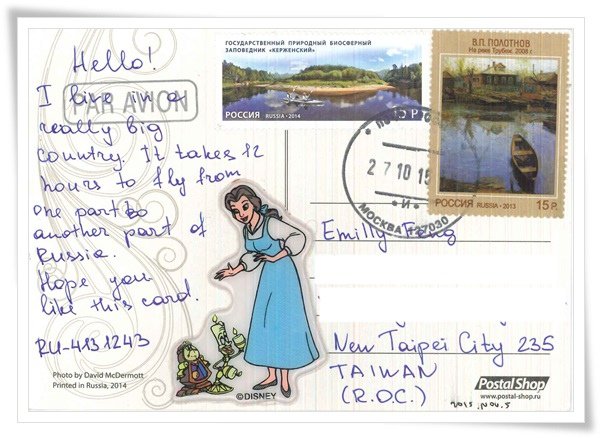 Hello!
I live in a
PAR AVION
really big
country. It takes 12
hours to fly from
one part to
another part of
Russia.
Hope you
like this card.
RU-4131243
Photo by David McDermott
Printed in Russia, 2014
ГОСУДАРСТВЕННЫЙ ПРИРОДНЫЙ БИОСФЕРНЫЙ
ЗАПОВЕДНИК «КЕРЖЕНСКИЙ»
РОССИЯ RUSSIA • 2014
Р
В.П. ПОЛОТНОВ
На реке Трубеж. 2008 г.
РОССИЯ RUSSIA • 2013 15 Р.
27 10 15
* И *
МОСКВА 127030
Emilly
New Taipei City 235
TAIWAN
(R.O.C.)
©DISNEY
PostalShop
www.postal-shop.ru
2015. Nov. 5